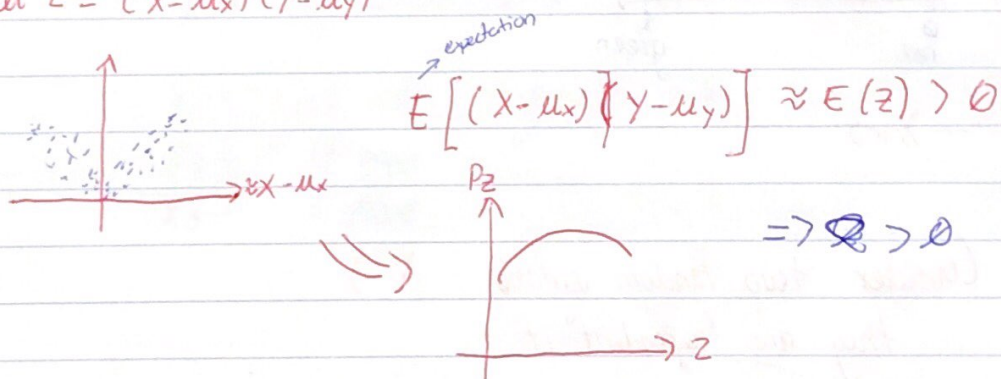 Z = (X-μx)(Y-μy)
expectation
E [(X-μx)(Y-μy)] ≈ E(Z) > 0
≈X-μx
Pz
=> > 0
Z